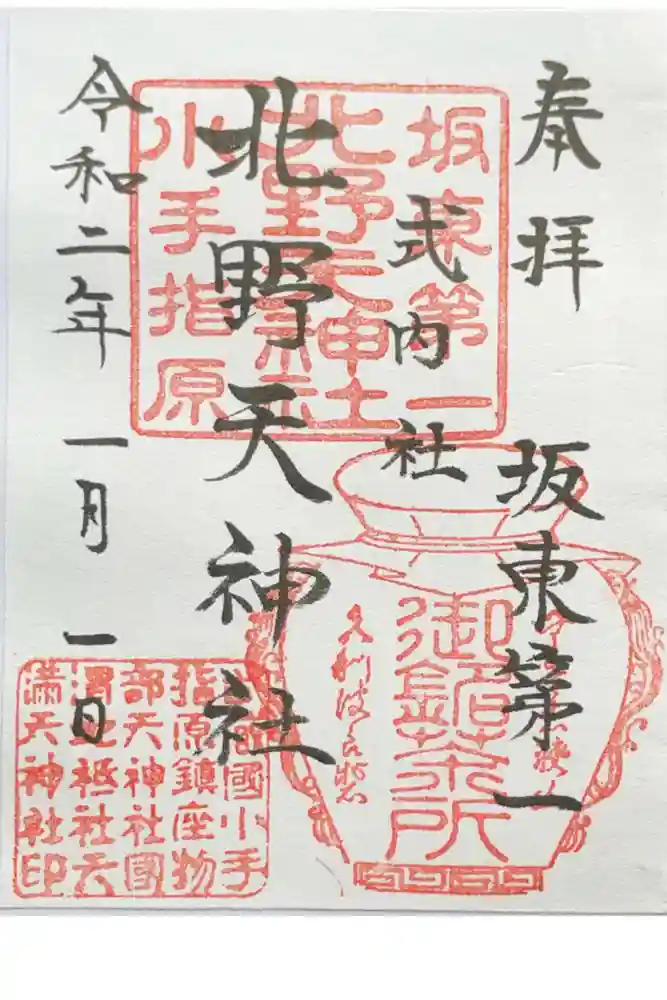 奉拝
坂東第一
式内社
北野天神社
令和二年 一月 一日
坂東第一
北野天神社
小手指原
國小手
指原鎮座物
部天神社國
渭地祇社天
満天神社印